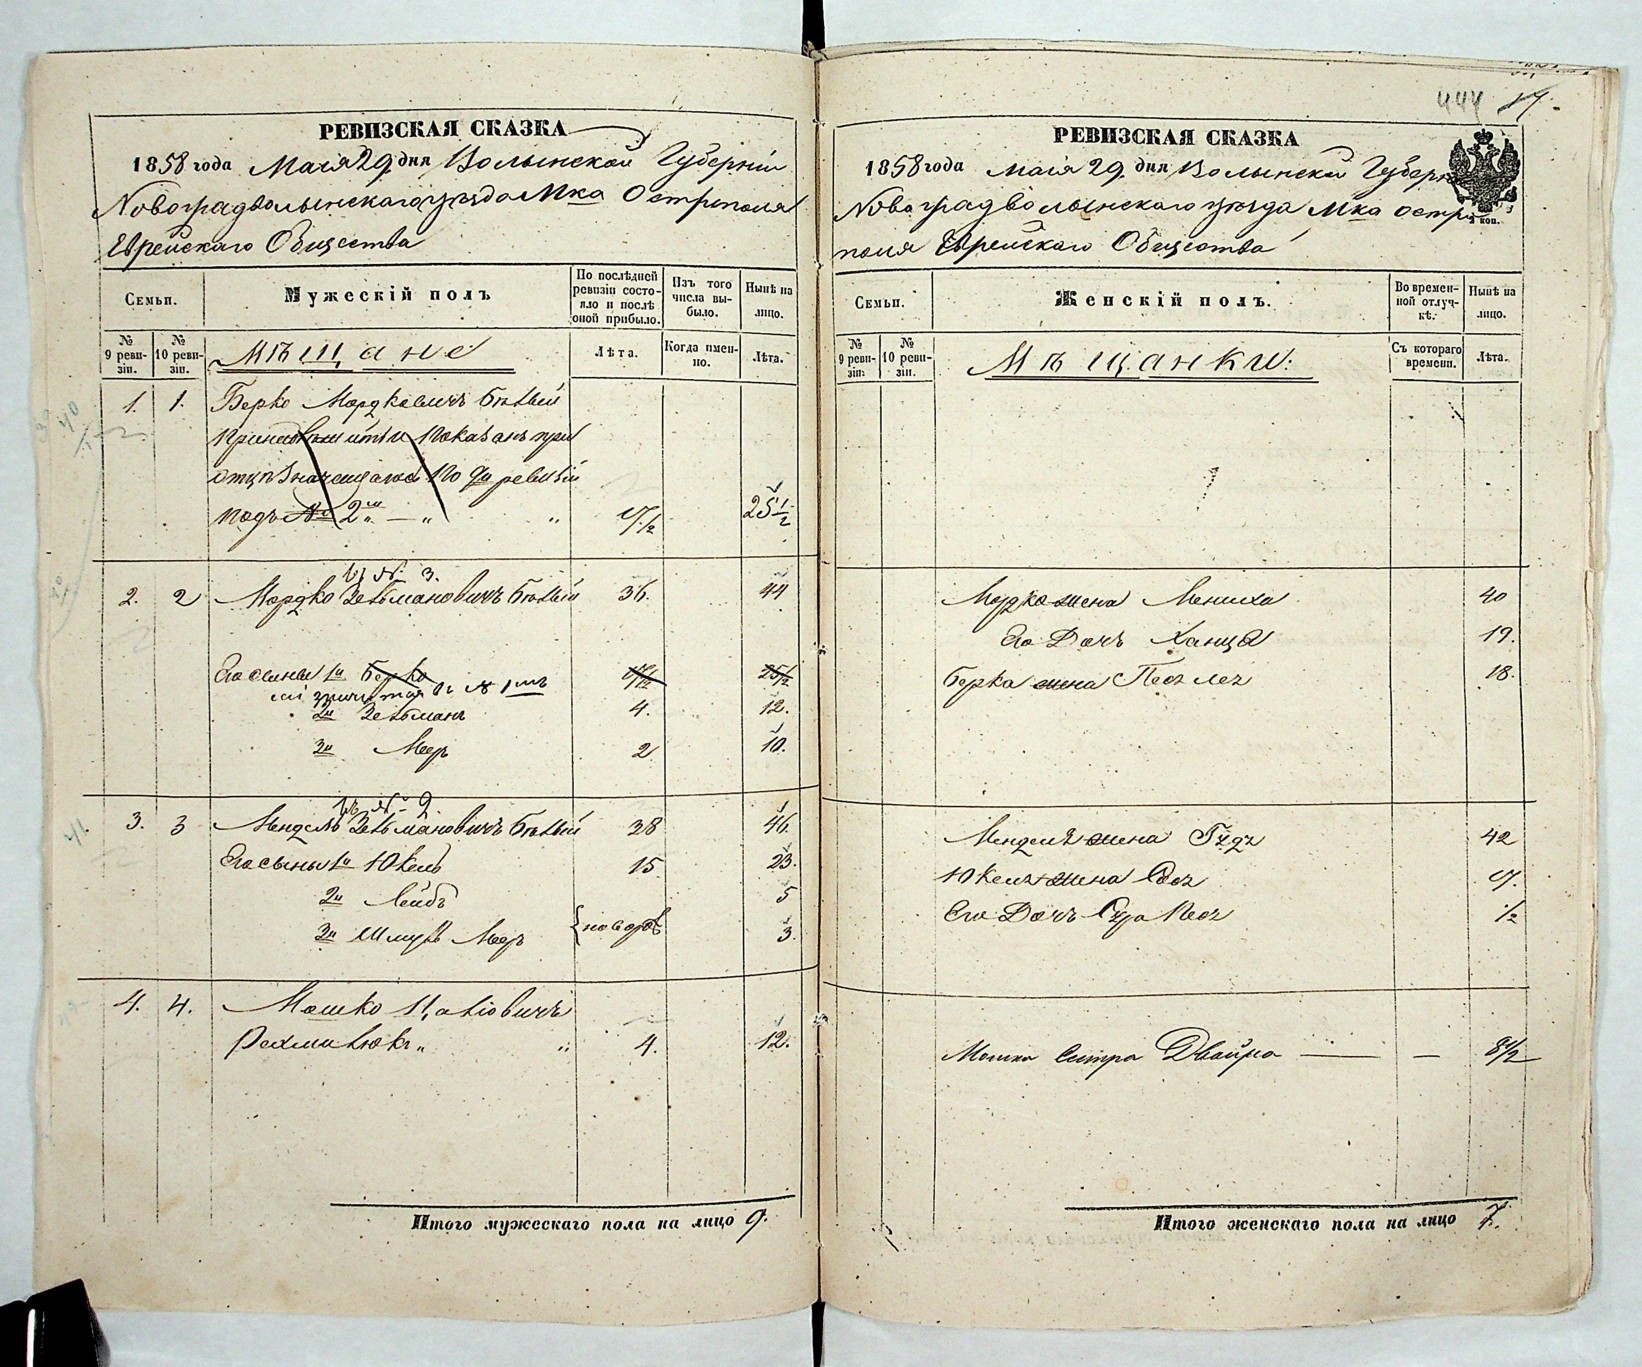 РЕВИЗСКАЯ СКАЗКА
1858 года Маiя 29 дня Волынской Губернiи
Новоградволынскаго уезда Мка Острополя
Еврейскаго Общества
Семьи.
Мужескiй полъ
По послѣдней ревизiи состояло и послѣ оной прибыло.
Изъ того числа выбыло.
Нынѣ на лицо.
№ 9 ревизiи.
№ 10 ревизiи.
Мѣщане
Лѣта.
Когда именно.
Лѣта.
1. 1. Берко Мордковичъ Бѣлый
показанъ при
отцѣ по 9й ревизiи
подъ № 2мъ 17 1/2 25 1/2
въ № 3.
2. 2 Мордко Зельмановичъ Бѣлый 36. 44
Его сыны 1й Берко 17 1/2 25 1/2
въ № 1мъ
2й Зельманъ 4. 12.
3й Меер 2 10.
въ № 2
3. 3 Мендель Зельмановичъ Бѣлый 38 46.
Его сыны 1й Юкель 15. 23.
2й Лейбъ 5
3й Шмуль Меер новорож 3.
4. 4. Мошко Ицковичъ
4. 12.
Итого мужескаго пола на лицо 9.
444 17.
РЕВИЗСКАЯ СКАЗКА
1858 года маiя 29. дня Волынской Губернiи
Новоградволынскаго уезда Мка Остро
поля Еврейскаго Общества
Семьи.
Женскiй полъ.
Во временной отлучкѣ.
Нынѣ на лицо.
№ 9 ревизiи.
№ 10 ревизiи.
Мѣщанки.
Съ котораго времени.
Лѣта.
Мордка жена Мениха 40
Его Дочь Ханця 19.
Берка жена Песлея 18.
Менделя жена Гудя 42
Юкеля жена 17.
Его Дочь Сура Песя 1/2
Мошка Сестра Двойра 8 1/2
Итого женскаго пола на лицо 7.